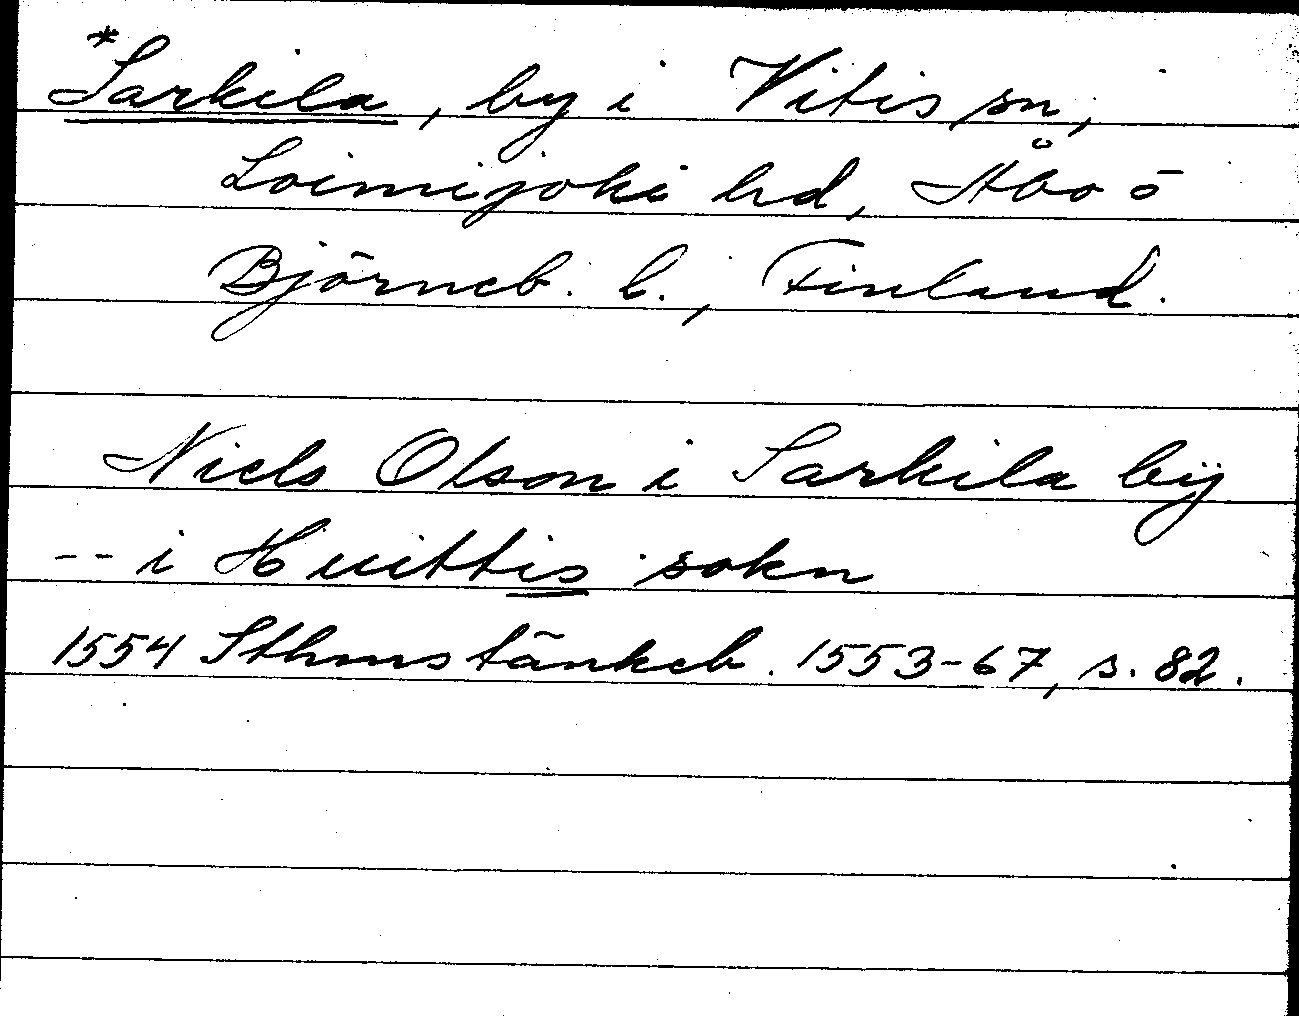 *Sarkila, by i Vitis sn,
Loimijoki hd, Åbo o
Björneb. l., Finland.
Niels Olson i Sarkila bÿ
-- i Huittis sokn
1554 Sthms tänkeb. 1553-67, s. 82.